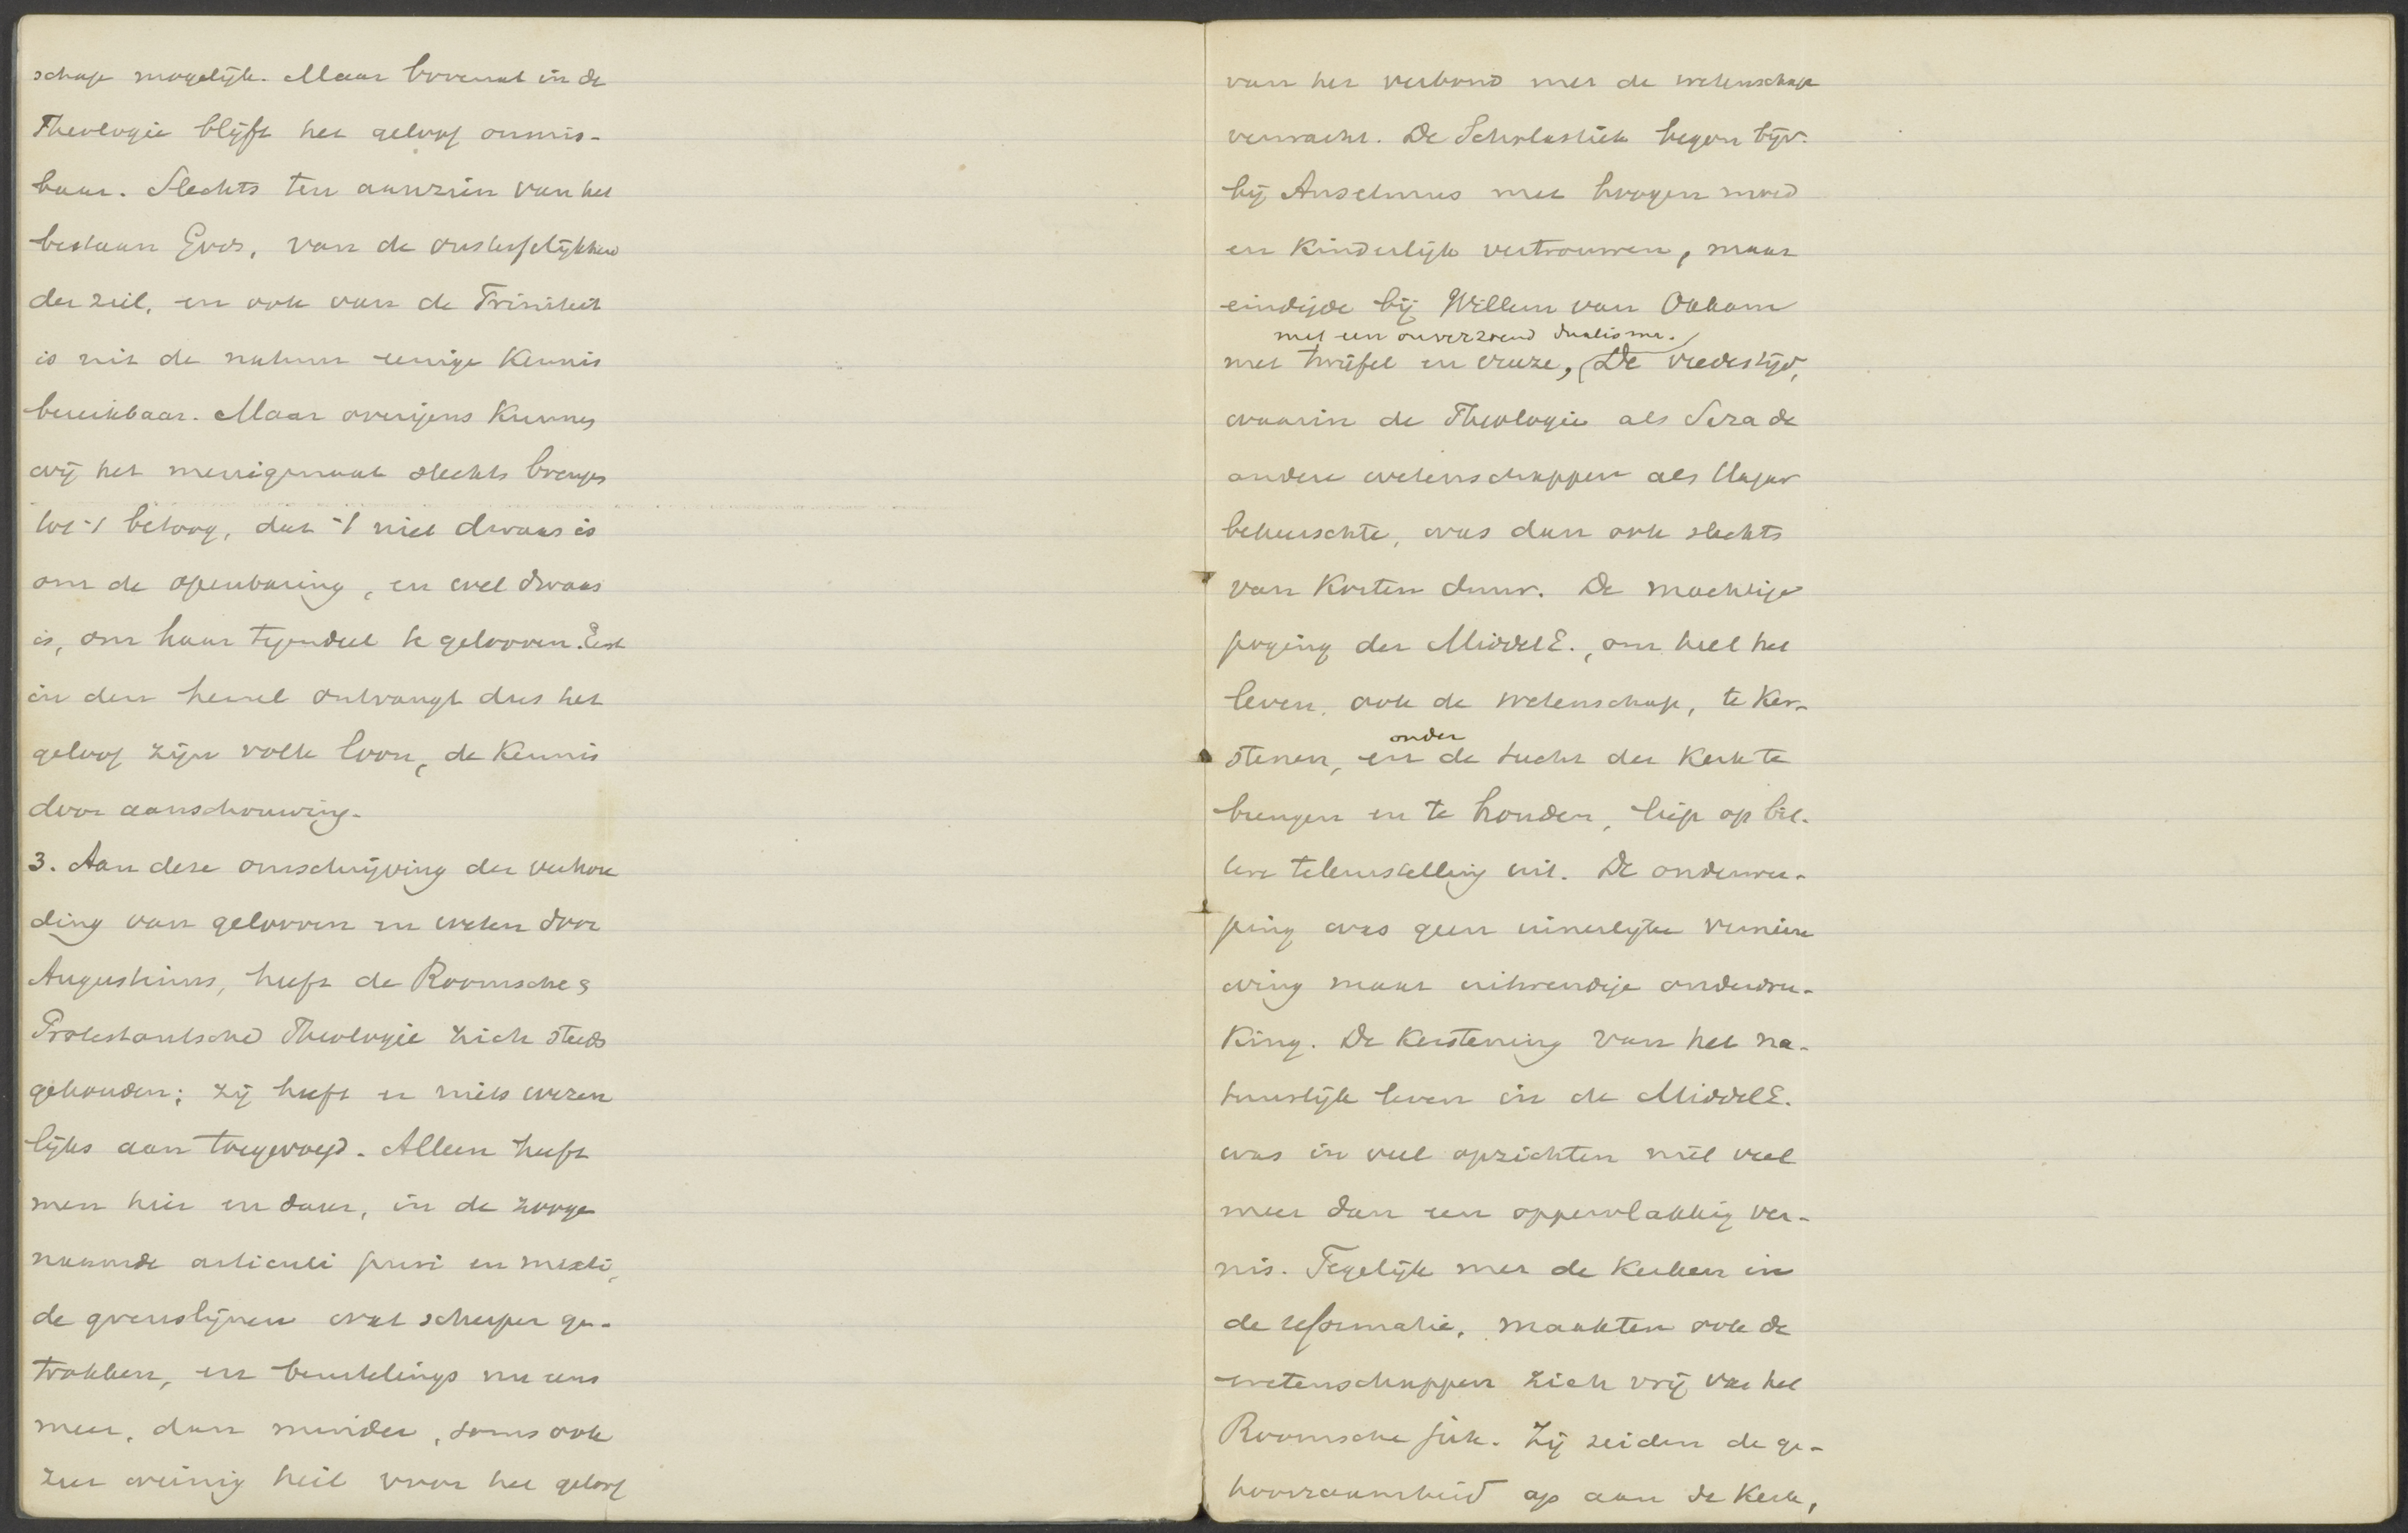 schap mogelijk. Maar bovenal in de
Theologie blijft het geloof onmis-
baar. Slechts ten aanzien van het
bestaan Gods, van de onsterfelijkheid
der ziel, en ook van de Triniteit
is uit de natuur eenige kennis
bereikbaar. Maar overigens kunnen
wij het menigmaal slechts brengen
tot 't betoog, dat 't niet dwaas is
om de openbaring, en wel dwaas
is, om haar tegendeel te gelooven. Eerst
in den hemel ontvangt dus het
geloof zijn volle loon, de kennis
door aanschouwing.
3. Aan deze omschrijving der verhou
ding van gelooven en weten door
Augustinus, heeft de Roomsche &
Protestantsche Theologie zich steeds
gehouden; zij heeft er niets wezen
lijks aan toegevoegd. Alleen heeft
men hier en daar, in de zooge
naamde articuli puri en mixti,
de grenslijnen wat scherper ge-
trokken, en beurtelings nu eens
meer, dan minder, soms ook
zeer weinig heil voor het geloof
van het verbond met de wetenschap
verwacht. De Scholastiek begon bijv.
bij Anselmus met hoogen moed
en kinderlijk vertrouwen, maar
eindigde bij Willem van Okkam
met een onverzoend dualisme.
met twijfel en vreeze, De vredestijd,
waarin de Theologie als Sara de
andere wetenschappen als Hagar
beheerschte, was dan ook slechts
van korten duur. De machtige
poging der MiddelE., om heel het
leven, ook de wetenschap, te ker-
onder
stenen, en de tucht der kerk te
brengen en te houden, liep op bit-
tere teleurstelling uit. De onderwer-
ping was geen innerlijke vernieu
wing maar uitwendige onderdru-
king. De kerstening van het na-
tuurlijk leven in de MiddelE.
was in veel opzichten niet veel
meer dan een oppervlakkig ver-
nis. Tegelijk met de kerken in
de reformatie, maakten ook de
wetenschappen zich vrij van het
Roomsche juk. Zij zeiden de ge-
hoorzaamheid op aan de Kerk,